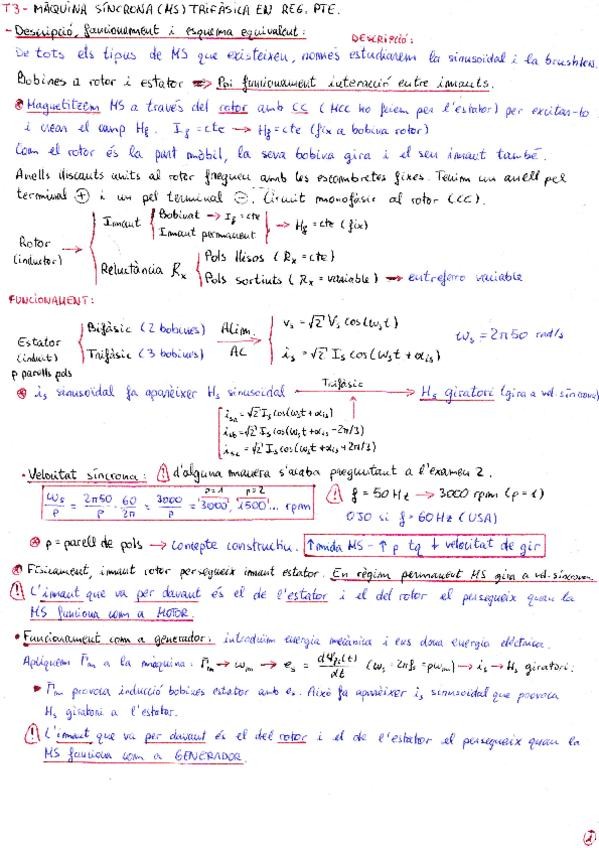 T3 - MÀQUINA SÍNCRONA (MS) TRIFÀSICA EN REG. PTE.
- Descripció, funcionament i esquema equivalent:
DESCRIPCIÓ:
De tots els tipus de MS que existeixen, només estudiarem la sinusoidal i la brushless.
Bobines a rotor i estator ⇒ Ppi funcionament interacció entre imants.
⊛ Magnetitzem MS a través del rotor amb CC (MCC ho fèiem per l'estator) per excitar-lo
i crear el camp Hf. If = cte → Hf = cte (fix a bobina rotor)
Com el rotor és la part mòbil, la seva bobina gira i el seu imant també.
Anells discants units al rotor freguen amb les escombretes fixes. Tenim un anell pel
terminal ⊕ i un pel terminal ⊖. Circuit monofàsic al rotor (CC).
Rotor (inductor) →
Imant
Bobinat → If = cte
Imant permanent
→ Hf = cte (fix)
Reluctància Rx
Pols llisos (Rx = cte)
Pols sortints (Rx = variable) → entreferro variable
FUNCIONAMENT:
Estator (induït)
p parells pols
Bifàsic (2 bobines)
Trifàsic (3 bobines)
Alim. AC →
vs = √2 Vs cos(ωst)
is = √2 Is cos(ωst + αis)
ωs = 2π50 rad/s
⊛ is sinusoïdal fa aparèixer Hs sinusoidal Trifàsic → Hs giratori (gira a vel. síncrona)
isa = √2 Is cos(ωst + αis)
isb = √2 Is cos(ωst + αis - 2π/3)
isc = √2 Is cos(ωst + αis + 2π/3)
• Velocitat síncrona: (!) d'alguna manera s'acaba preguntant a l'examen 2.
ωs/p = 2π50/p · 60/2π = 3000/p = p=1 3000, p=2 1500... rpm
(!) f = 50Hz → 3000 rpm (p=1)
OJO si f = 60Hz (USA)
⊛ p = parell de pols → concepte constructiu. ↑mida MS - ↑p tq ↓ velocitat de gir
⊛ Físicament, imant rotor persegueix imant estator. En règim permanent MS gira a vel. síncrona.
(!) L'imant que va per davant és el de l'estator i el del rotor el persegueix quan la
MS funciona com a MOTOR.
• Funcionament com a generador: introduïm energia mecànica i ens dona energia elèctrica.
Apliquem Γm a la màquina: Γm → ωm → es = dΨf(t)/dt (ωs = 2πfs = pωm) → is → Hs giratori:
▸ Γm provoca inducció bobines estator amb es. Això fa aparèixer is sinusoïdal que provoca
Hs giratori a l'estator.
(!) L'imant que va per davant és el del rotor i el de l'estator el persegueix quan la
MS funciona com a GENERADOR.